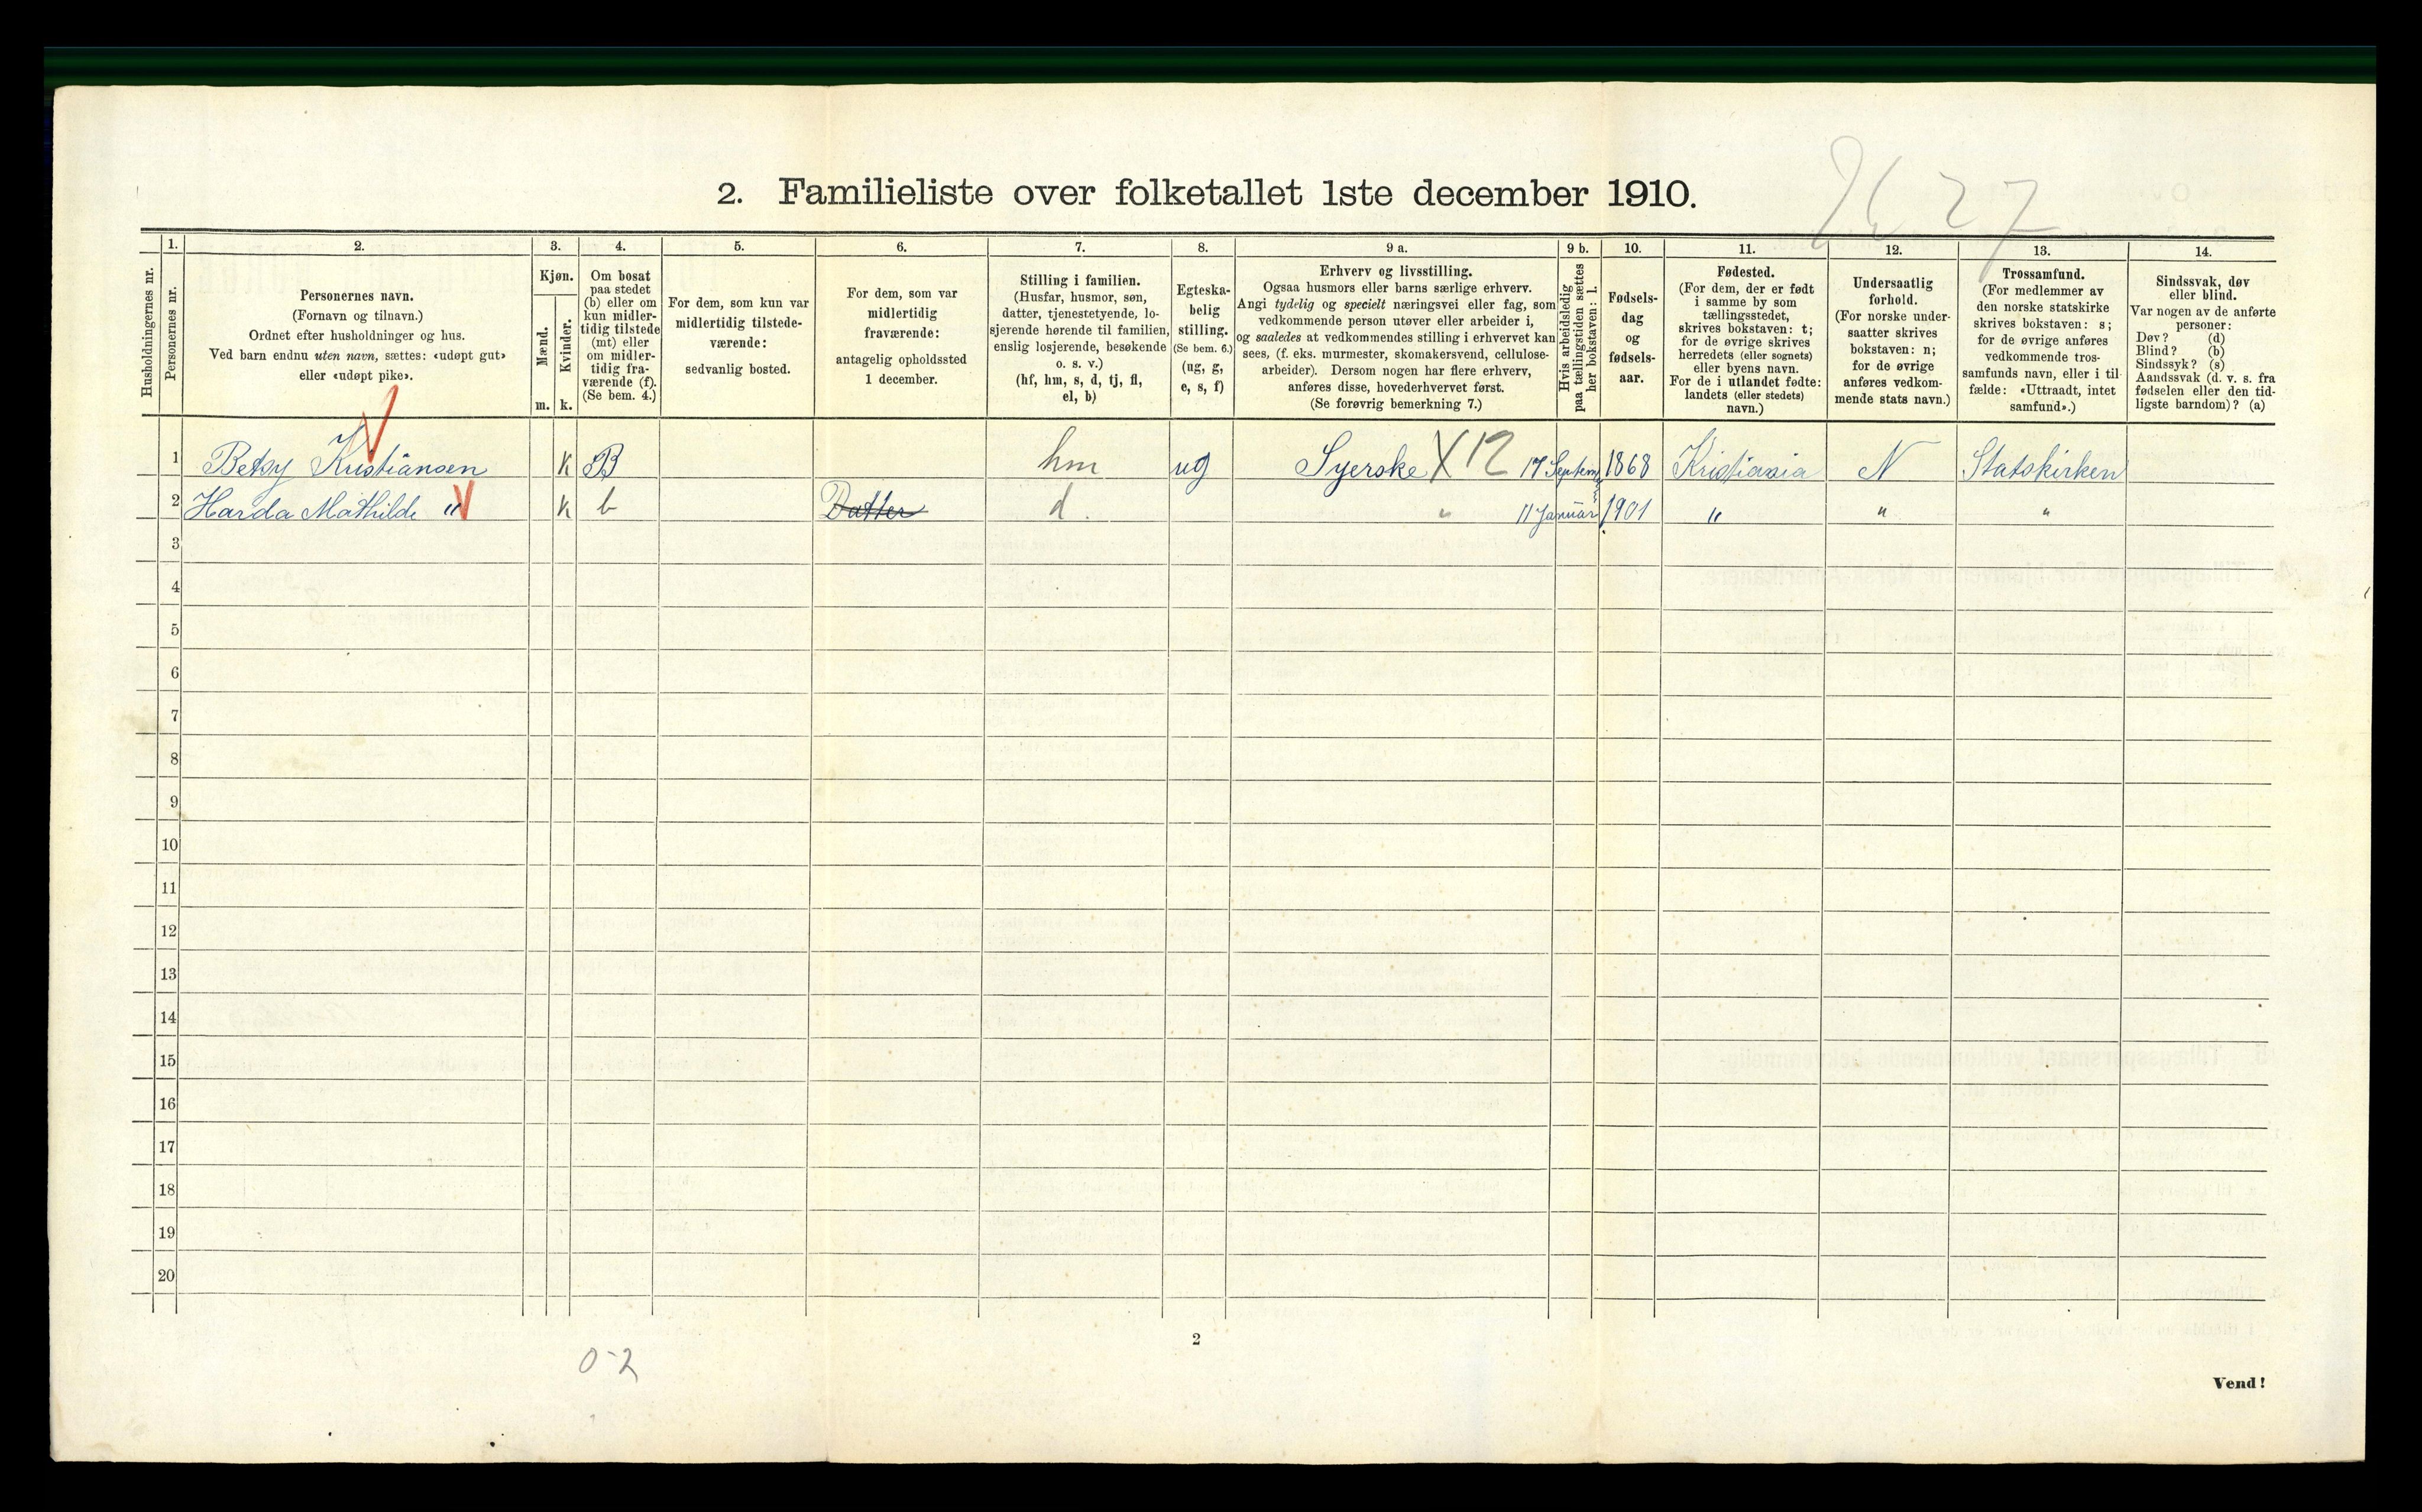 2627
2. Familieliste over folketallet 1ste december 1910.
Husholdningernes nr.
1.
Personernes nr.
2.
Personernes navn.
(Fornavn og tilnavn.)
Ordnet efter husholdninger og hus.
Ved barn endnu uten navn, sættes: «udøpt gut»
eller «udøpt pike».
3.
Kjøn.
Mænd.
Kvinder.
m. k.
4.
Om bosat
paa stedet
(b) eller om
kun midler-
tidig tilstede
(mt) eller
om midler-
tidig fra-
værende (f).
(Se bem. 4.)
5.
For dem, som kun var
midlertidig tilstede-
værende:
sedvanlig bosted.
6.
For dem, som var
midlertidig
fraværende:
antagelig opholdssted
1 december.
7.
Stilling i familien.
(Husfar, husmor, søn,
datter, tjenestetyende, lo-
sjerende hørende til familien,
enslig losjerende, besøkende
o. s. v.)
(hf, hm, s, d, tj, fl,
el, b)
8.
Egteska-
belig
stilling.
(Se bem. 6.)
(ug, g,
e, s, f)
9 a.
Erhverv og livsstilling.
Ogsaa husmors eller barns særlige erhverv.
Angi tydelig og specielt næringsvei eller fag, som
vedkommende person utøver eller arbeider i,
og saaledes at vedkommendes stilling i erhvervet kan
sees, (f. eks. murmester, skomakersvend, cellulose-
arbeider). Dersom nogen har flere erhverv,
anføres disse, hovederhvervet først.
(Se forøvrig bemerkning 7.)
9 b.
Hvis arbeidsledig
paa tællingstiden sættes
her bokstaven: l.
10.
Fødsels-
dag
og
fødsels-
aar.
11.
Fødested.
(For dem, der er født
i samme by som
tællingsstedet,
skrives bokstaven: t;
for de øvrige skrives
herredets (eller sognets)
eller byens navn.
For de i utlandet fødte:
landets (eller stedets)
navn.)
12.
Undersaatlig
forhold.
(For norske under-
saatter skrives
bokstaven: n;
for de øvrige
anføres vedkom-
mende stats navn.)
13.
Trossamfund.
(For medlemmer av
den norske statskirke
skrives bokstaven: s;
for de øvrige anføres
vedkommende tros-
samfunds navn, eller i til-
fælde: «Uttraadt, intet
samfund».)
14.
Sindssvak, døv
eller blind.
Var nogen av de anførte
personer:
Døv? (d)
Blind? (b)
Sindssyk? (s)
Aandssvak (d. v. s. fra
fødselen eller den tid-
ligste barndom)? (a)
1 Betsy Kristiansen K B hm ug Syerske X12 17 Septem 1868 Kristiania N Statskirken
2 Harda Mathilde " K b Datter d. " 11 Januar 1901 " " "
3
4
5
6
7
8
9
10
11
12
13
14
15
16
17
18
19
20
2
0-2
Vend!